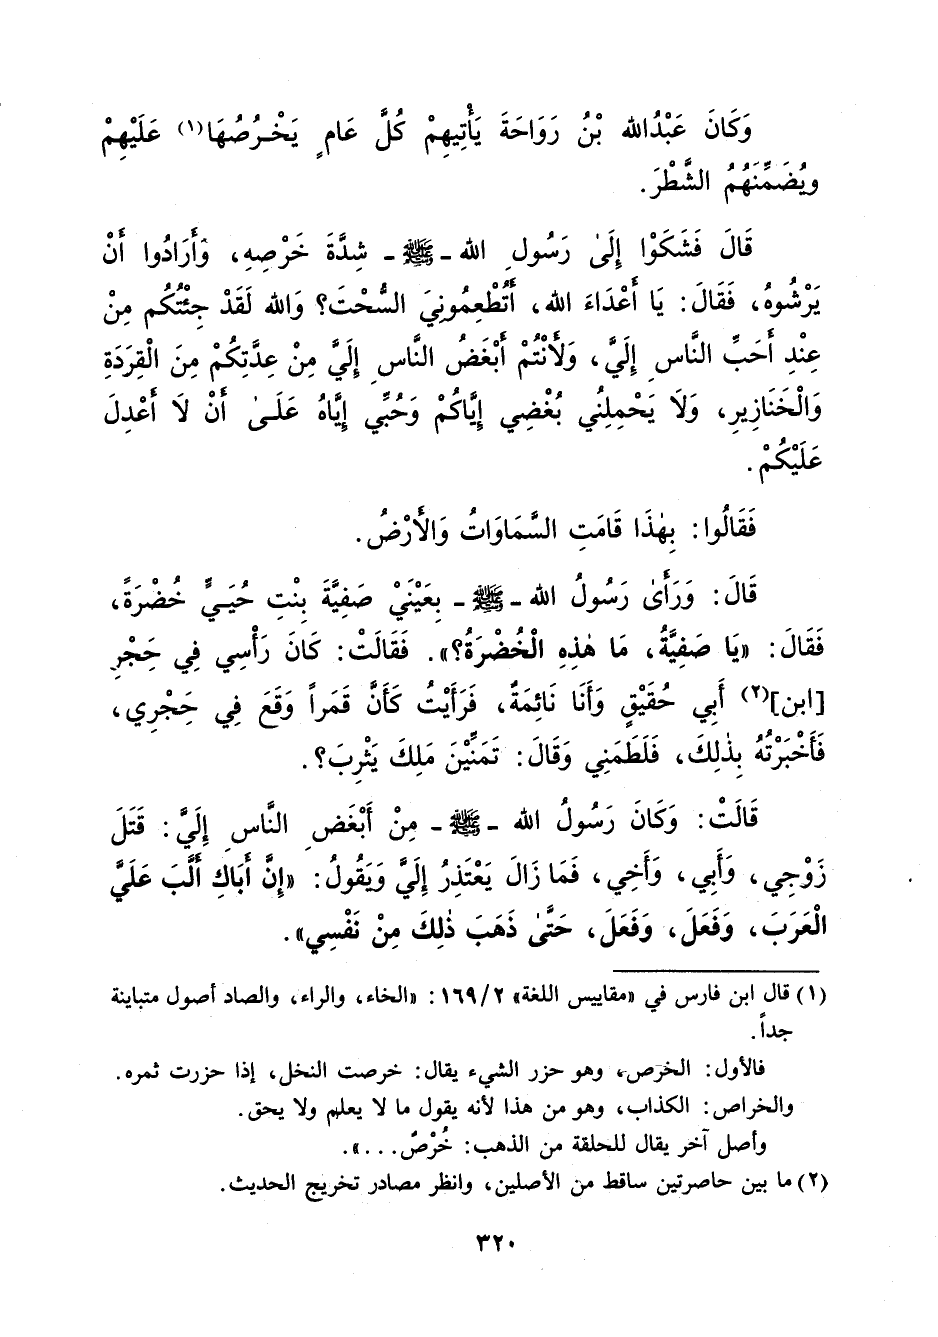 وَكَانَ عَبْدُالله بْنُ رَوَاحَةَ يَأْتِيهِمْ كُلَّ عَامٍ يَخْرُصُهَا(١) عَلَيْهِمْ
ويُضَمِّنَهُمُ الشَّطْرَ.
قَالَ فَشَكَوْا إِلَىٰ رَسُولِ الله ـ ﷺ ـ شِدَّةَ خَرْصِهِ، وَأَرَادُوا أَنْ
يَرْشُوهُ، فَقَالَ: يَا أَعْدَاءَ الله، أَتُطْعِمُونِيَ السُّحْتَ؟ وَالله لَقَدْ جِئْتُكُم مِنْ
عِنْدِ أَحَبِّ النَّاسِ إِلَيَّ، وَلَأَنْتُمْ أَبْغَضُ النَّاسِ إِلَيَّ مِنْ عِدَّتِكُمْ مِنَ الْقِرَدَةِ
وَالْخَنَازِيرِ، وَلَا يَحْمِلُنِي بُغْضِي إِيَّاكُمْ وَحُبِّي إِيَّاهُ عَلَىٰ أَنْ لَا أَعْدِلَ
عَلَيْكُمْ.
فَقَالُوا: بِهٰذَا قَامَتِ السَّمَاوَاتُ وَالْأَرْضُ.
قَالَ: وَرَأَىٰ رَسُولُ الله ـ ﷺ ـ بِعَيْنَيْ صَفِيَّةَ بِنْتِ حُيَيٍّ خُضْرَةً،
فَقَالَ: «يَا صَفِيَّةُ، مَا هٰذِهِ الْخُضْرَةُ؟». فَقَالَتْ: كَانَ رَأْسِي فِي حِجْرِ
[ابن](٢) أَبِي حُقَيْقٍ وَأَنَا نَائِمَةٌ، فَرَأَيْتُ كَأَنَّ قَمَراً وَقَعَ فِي حِجْرِي،
فَأَخْبَرْتُهُ بِذٰلِكَ، فَلَطَمَنِي وَقَالَ: تَمَنَّيْنَ مَلِكَ يَثْرِبَ؟.
قَالَتْ: وَكَانَ رَسُولُ الله ـ ﷺ ـ مِنْ أَبْغَضِ النَّاسِ إِلَيَّ: قَتَلَ
زَوْجِي، وَأَبِي، وَأَخِي، فَمَا زَالَ يَعْتَذِرُ إِلَيَّ وَيَقُولُ: «إِنَّ أَبَاكِ أَلَّبَ عَلَيَّ
الْعَرَبَ، وَفَعَلَ، وَفَعَلَ، حَتَّىٰ ذَهَبَ ذٰلِكَ مِنْ نَفْسِي».
(١) قال ابن فارس في «مقاييس اللغة» ١٦٩/٢: «الخاء، والراء، والصاد أصول متباينة
جداً.
فالأول: الخرص، وهو حزر الشيء يقال: خرصت النخل، إذا حزرت ثمره.
والخراص: الكذاب، وهو من هذا لأنه يقول ما لا يعلم ولا يحق.
وأصل آخر يقال للحلقة من الذهب: خُرْصٌ...».
(٢) ما بين حاصرتين ساقط من الأصلين، وانظر مصادر تخريج الحديث.
٣٢٠